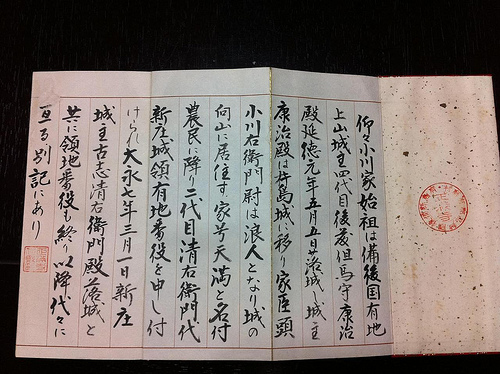 仰々小川家始祖は備後国有地
上山城主四代目後菱但馬守康治
殿延徳元年五月五日落城し城主
康治殿は杵島城に移り家臣頭
小川右衛門尉は浪人となり城の
向山に居住す家号天満と名付
農民に降り二代目清右衛門代
新庄城領有地番役を申し付
けられ大永七年三月一日新庄
城主古志清右衛門殿落城と
共に領地番役も終り以降代々に
亘る別記にあり